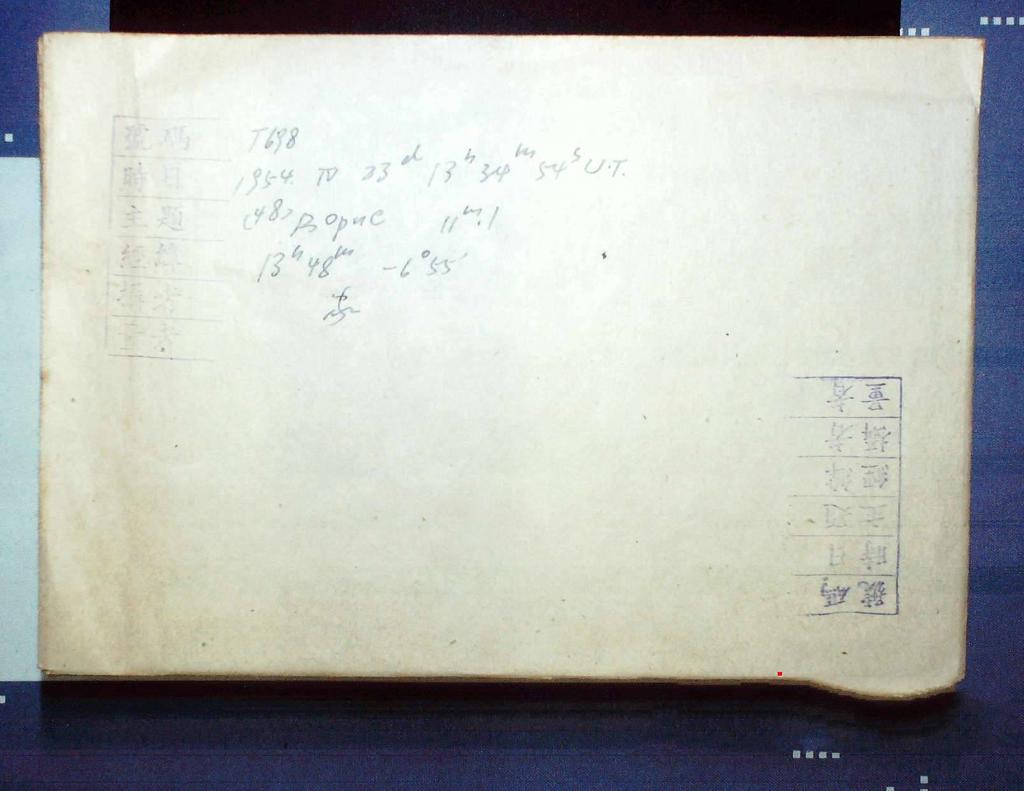 號碼 T698
時日 1954. IV 23ᵈ 13ʰ 34ᵐ 54ˢ U.T.
主題 (48) Дорис 11ᵐ.1
經緯 13ʰ48ᵐ -6°55'
攝者
量者
號碼
時日
主題
經緯
攝者
量者